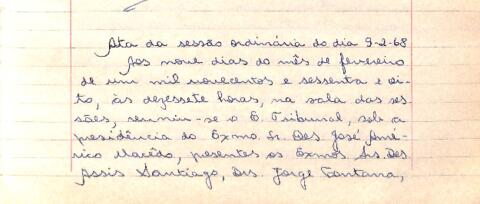 Ata da sessão ordinária do dia 9-2-68
Aos nove dias do mês de fevereiro
de um mil novecentos e sessenta e oi-
to, às dezessete horas, na sala das ses-
sões, reuniu-se o E. Tribunal, sob a
presidência do Exmo. Sr. Des. José Amé-
rico Macêdo, presentes os Exmos. Srs. Des.
Assis Santiago, Drs. Jorge Fontana,